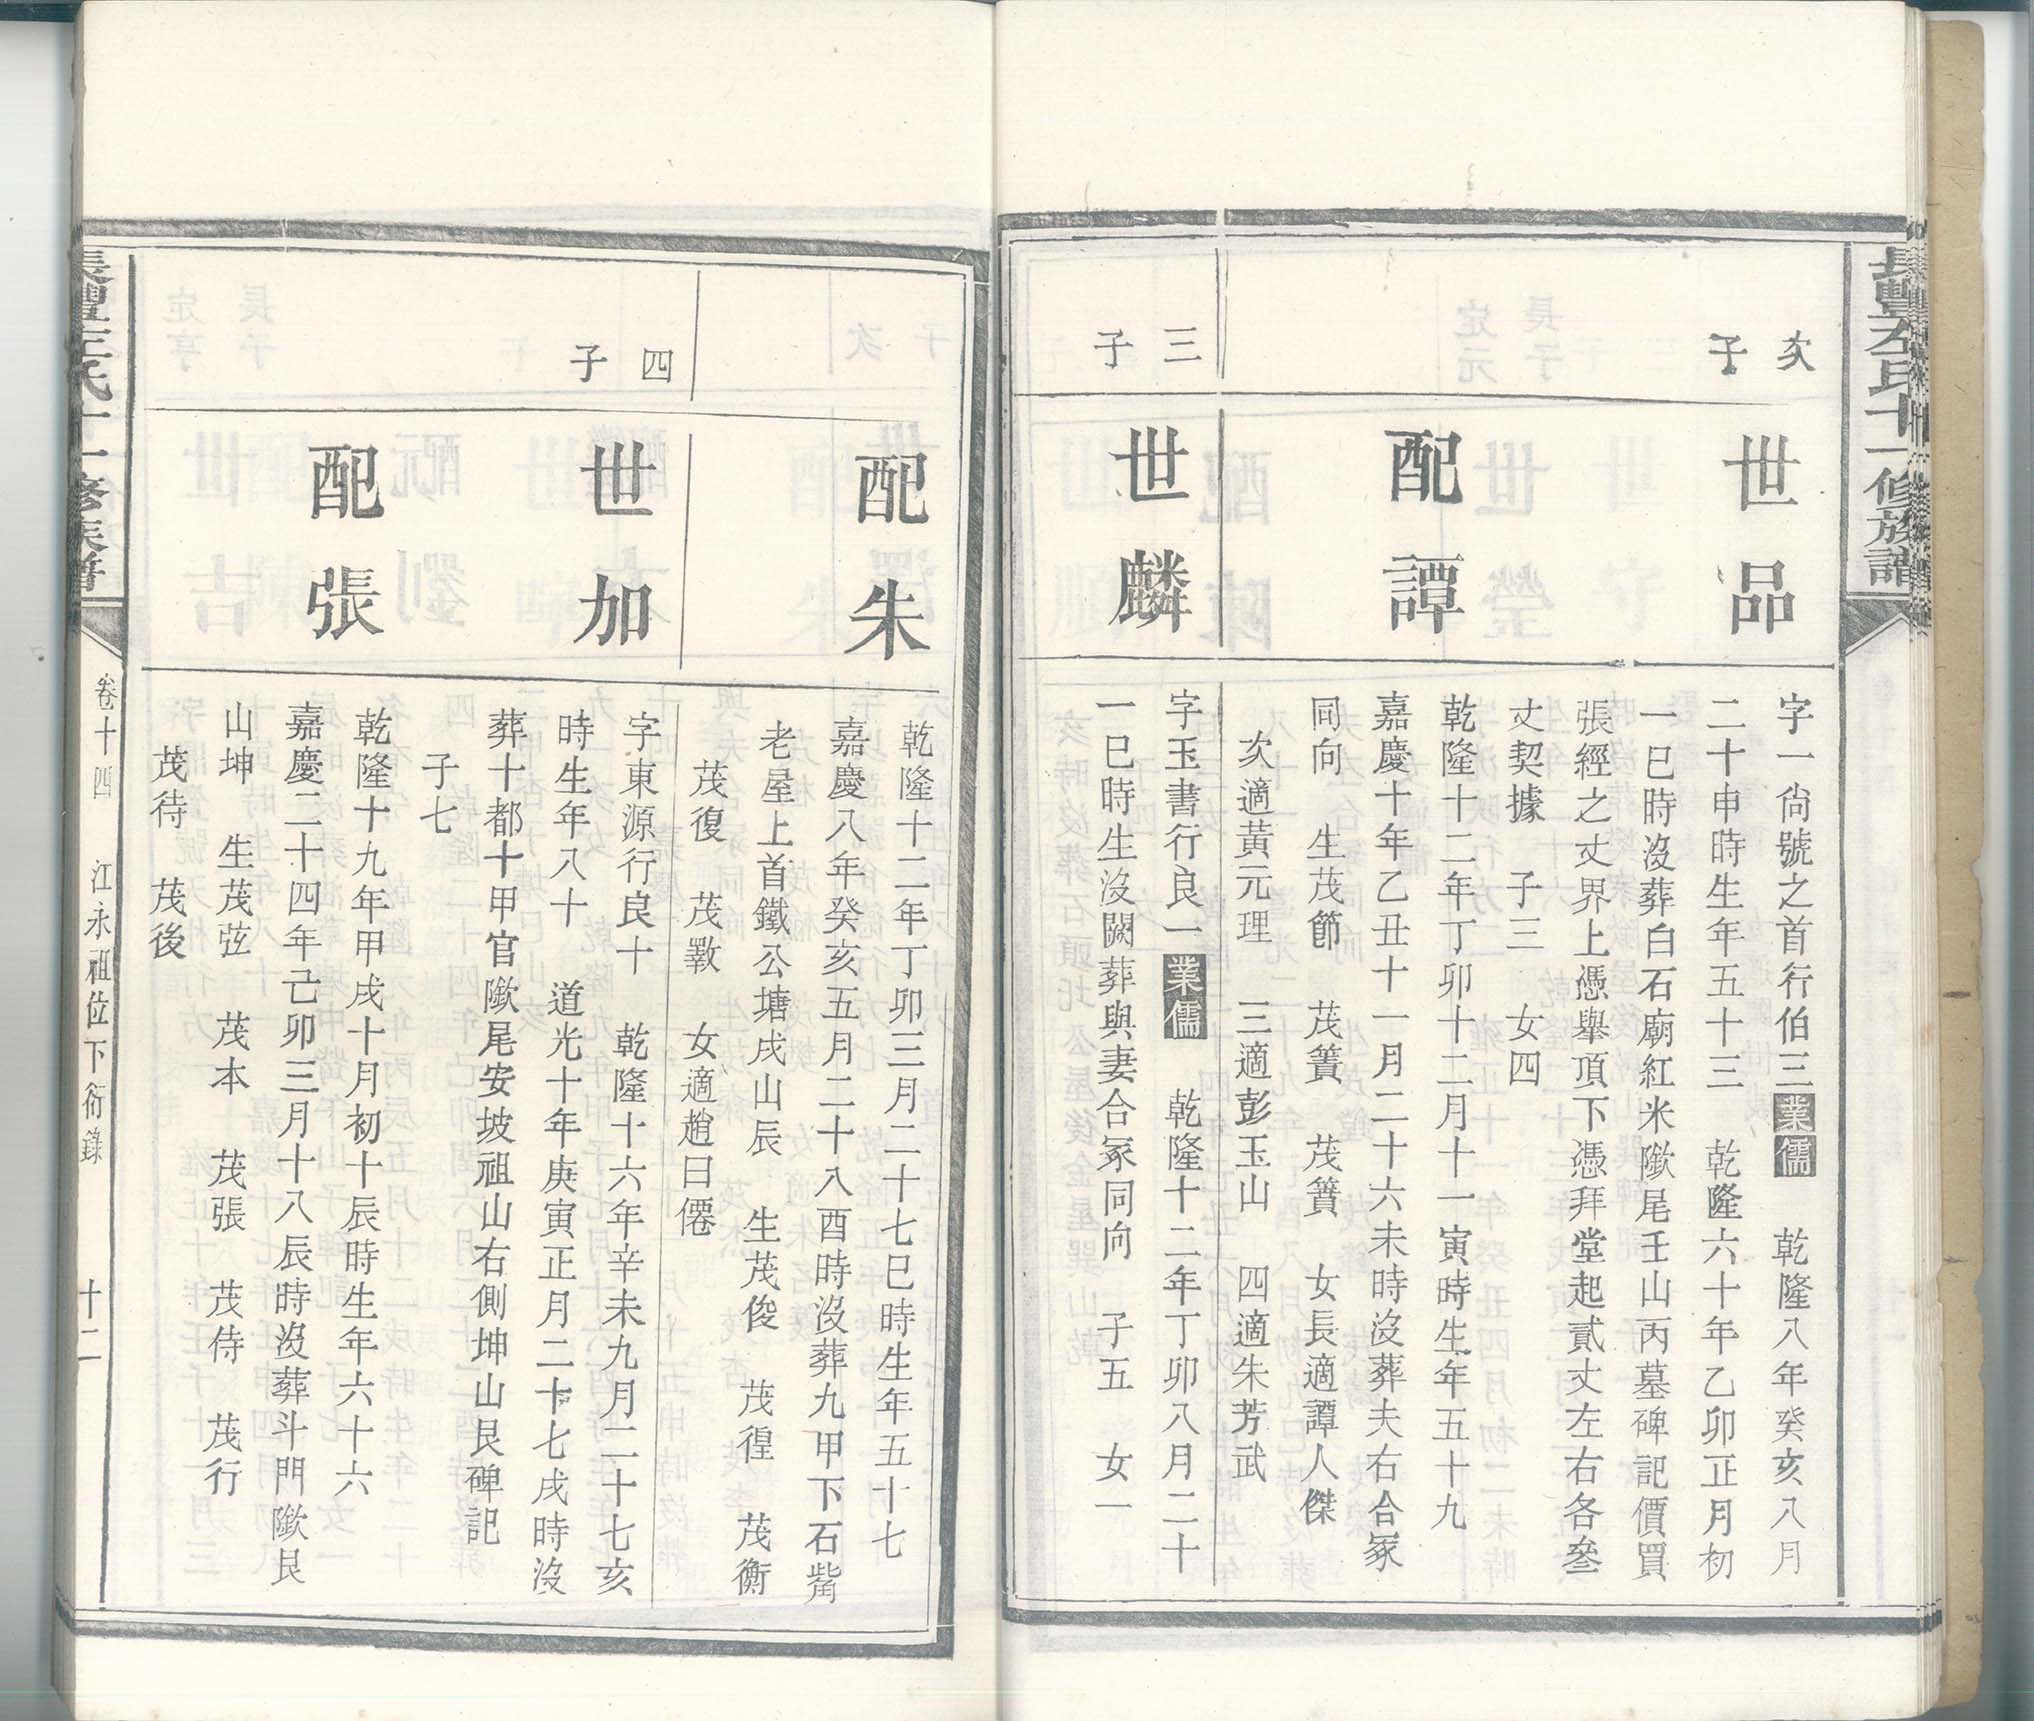 長豐左氏十一修族譜
次子
世品
字一尙號之首行伯三業儒　乾隆八年癸亥八月
二十申時生年五十三　乾隆六十年乙卯正月初
一巳時沒葬白石廟紅米𡼏尾壬山丙墓碑記價買
張經之丈界上憑舉頂下憑拜堂起貳丈左右各叁
丈契據　子三　女四
配譚
乾隆十二年丁卯十二月十一寅時生年五十九
嘉慶十年乙丑十一月二十六未時沒葬夫右合冢
同向　生茂節　茂簧　茂簪　女長適譚人傑
次適黃元理　三適彭玉山　四適朱芳武
三子
世麟
字玉書行良一業儒　乾隆十二年丁卯八月二十
一巳時生沒闕葬與妻合冢同向　子五　女一
配朱
乾隆十二年丁卯三月二十七巳時生年五十七
嘉慶八年癸亥五月二十八酉時沒葬九甲下石觜
老屋上首鐵公塘戌山辰　生茂俊　茂徨　茂衡
茂復　茂斁　女適趙曰僊
四子
世加
字東源行良十　乾隆十六年辛未九月二十七亥
時生年八十　道光十年庚寅正月二十七戌時沒
葬十都十甲官𡼏尾安坡祖山右側坤山艮碑記
子七
配張
乾隆十九年甲戌十月初十辰時生年六十六
嘉慶二十四年己卯三月十八辰時沒葬斗門𡼏艮
山坤　生茂弦　茂本　茂張　茂侍　茂行
茂待　茂後
長豐左氏十一修族譜
卷十四　江永祖位下衍錄　十二